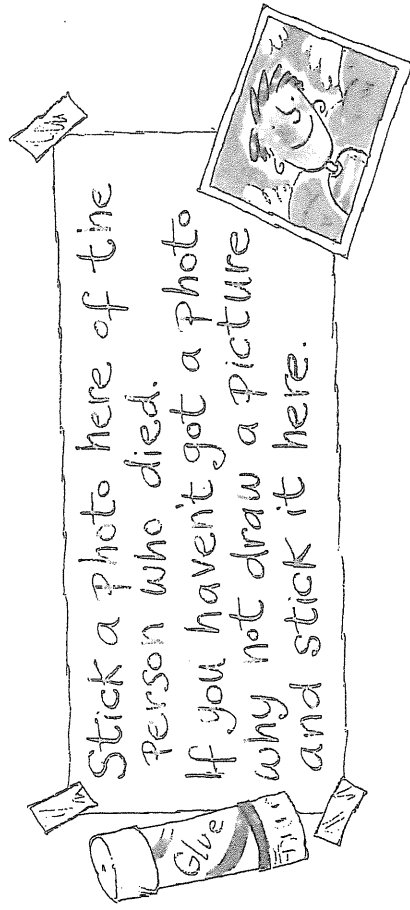 Stick a Photo here of the
Person who died.
If you haven't got a Photo
why not draw a Picture
and stick it here.
Glue